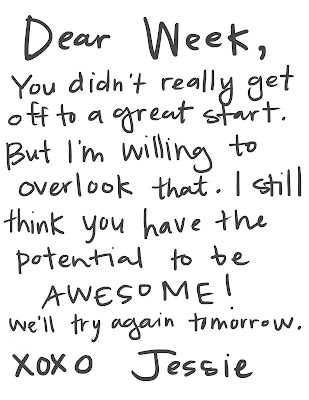 Dear Week,
You didn't really get
off to a great start.
But I'm willing to
overlook that. I still
think you have the
potential to be
AWESOME!
We'll try again tomorrow.
XOXO Jessie